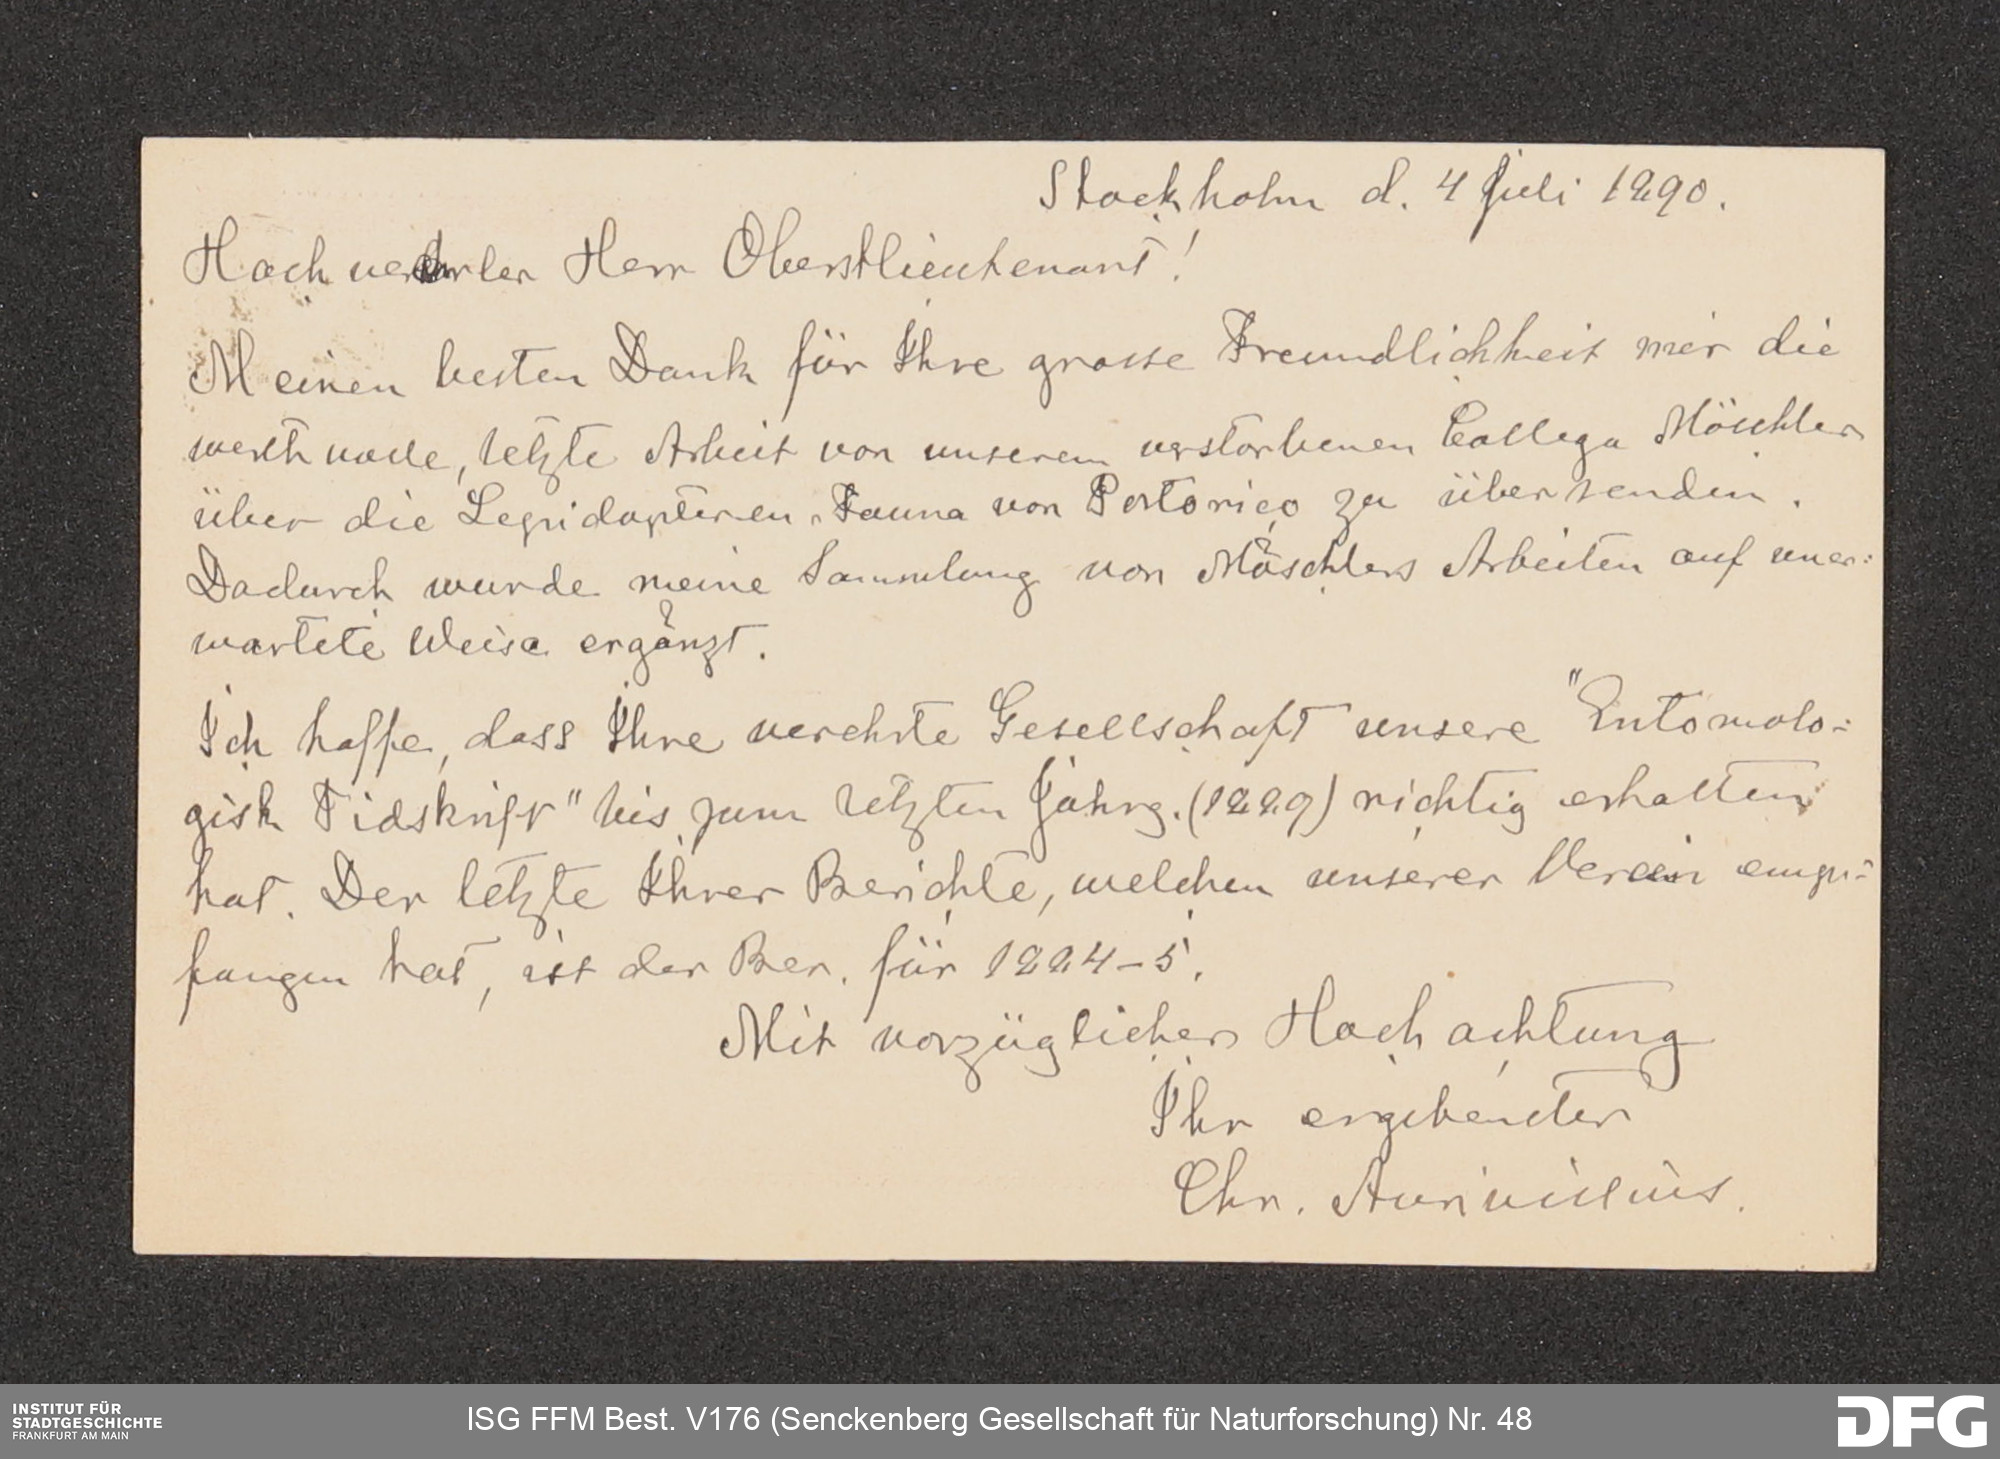 Stockholm d. 4 Juli 1890.
Hochverehrter Herr Oberstlieutenant!
Meinen besten Dank für Ihre grosse Freundlichkeit mir die
werthvolle, letzte Arbeit von unserem verstorbenen Collega Möschler
über die Lepidopteren-Fauna von Portorico zu übersenden.
Dadurch wurde meine Sammlung von Möschlers Arbeiten auf uner-
wartete Weise ergänzt.
Ich hoffe, dass Ihre verehrte Gesellschaft unsere "Entomolo-
gisk Tidskrift" bis zum letzten Jahrg. (1889) richtig erhalten
hat. Der letzte Ihrer Berichte, welchen unserer Verein emp-
fangen hat, ist der Ber. für 1884-5.
Mit vorzüglicher Hochachtung
Ihr ergebenster
Chr. Aurivillius.
INSTITUT FÜR
STADTGESCHICHTE
FRANKFURT AM MAIN
ISG FFM Best. V176 (Senckenberg Gesellschaft für Naturforschung) Nr. 48
DFG